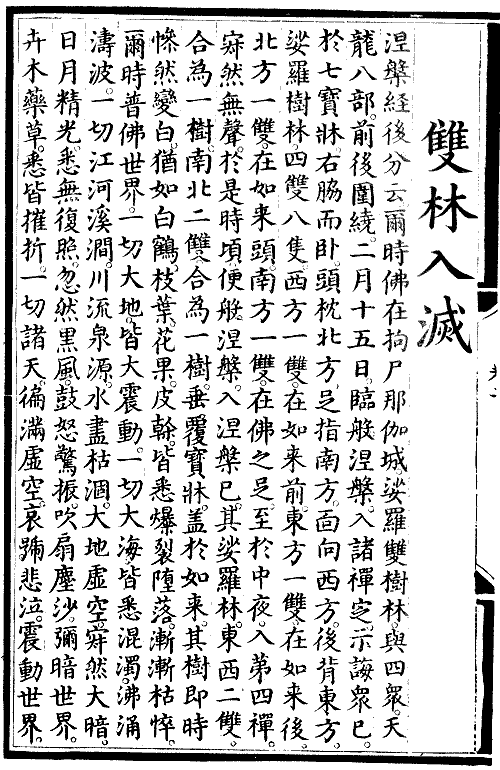 雙林入滅
涅槃経後分云。爾時佛在拘尸那伽城。娑羅雙樹林。與四衆。天
龍八部。前後圍繞。二月十五日。臨般涅槃。入諸禪定。示誨衆已。
於七寶牀。右脇而卧。頭枕北方。足指南方。面向西方。後背東方。
娑羅樹林。四雙八隻。西方一雙。在如来前。東方一雙。在如来後。
北方一雙。在如来頭。南方一雙。在佛之足。至於中夜。入第四禪。
㝛然無聲。於是時頃。便般涅槃。入涅槃已。其娑羅林。東西二雙。
合為一樹。南北二雙。合為一樹。垂覆寶牀。蓋於如来。其樹即時
慘然變白。猶如白鶴。枝葉。花果。皮幹。皆悉爆裂墮落。漸漸枯悴。
爾時普佛世界。一切大地。皆大震動。一切大海。皆悉混濁。沸涌
濤波。一切江河溪澗。川流泉源。水盡枯涸。大地虛空。㝛然大暗。
日月精光。悉無復照。忽然黒風。鼓怒驚振。吹扇塵沙。彌暗世界。
卉木藥草。悉皆摧折。一切諸天。徧滿虛空。哀號悲泣。震動世界。